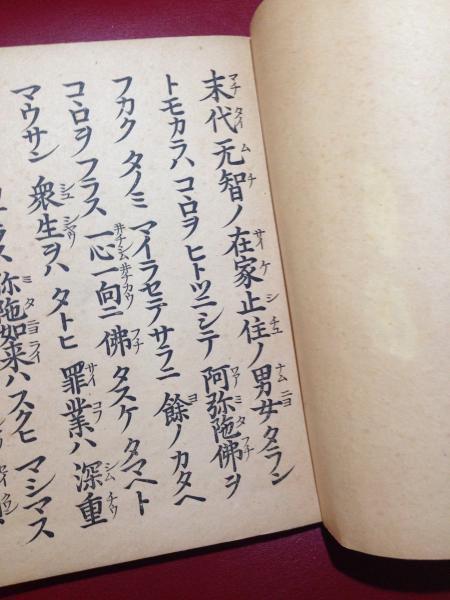 末代无智ノ在家止住ノ男女タラン
トモカラハコヽロヲヒトツニシテ阿弥陀佛ヲ
フカクタノミマイラセテサラニ餘ノカタヘ
コヽロヲフラス一心一向ニ佛タスケタマヘト
マウサン衆生ヲハタトヒ罪業ハ深重
弥陀如来ハスクヒマシマス